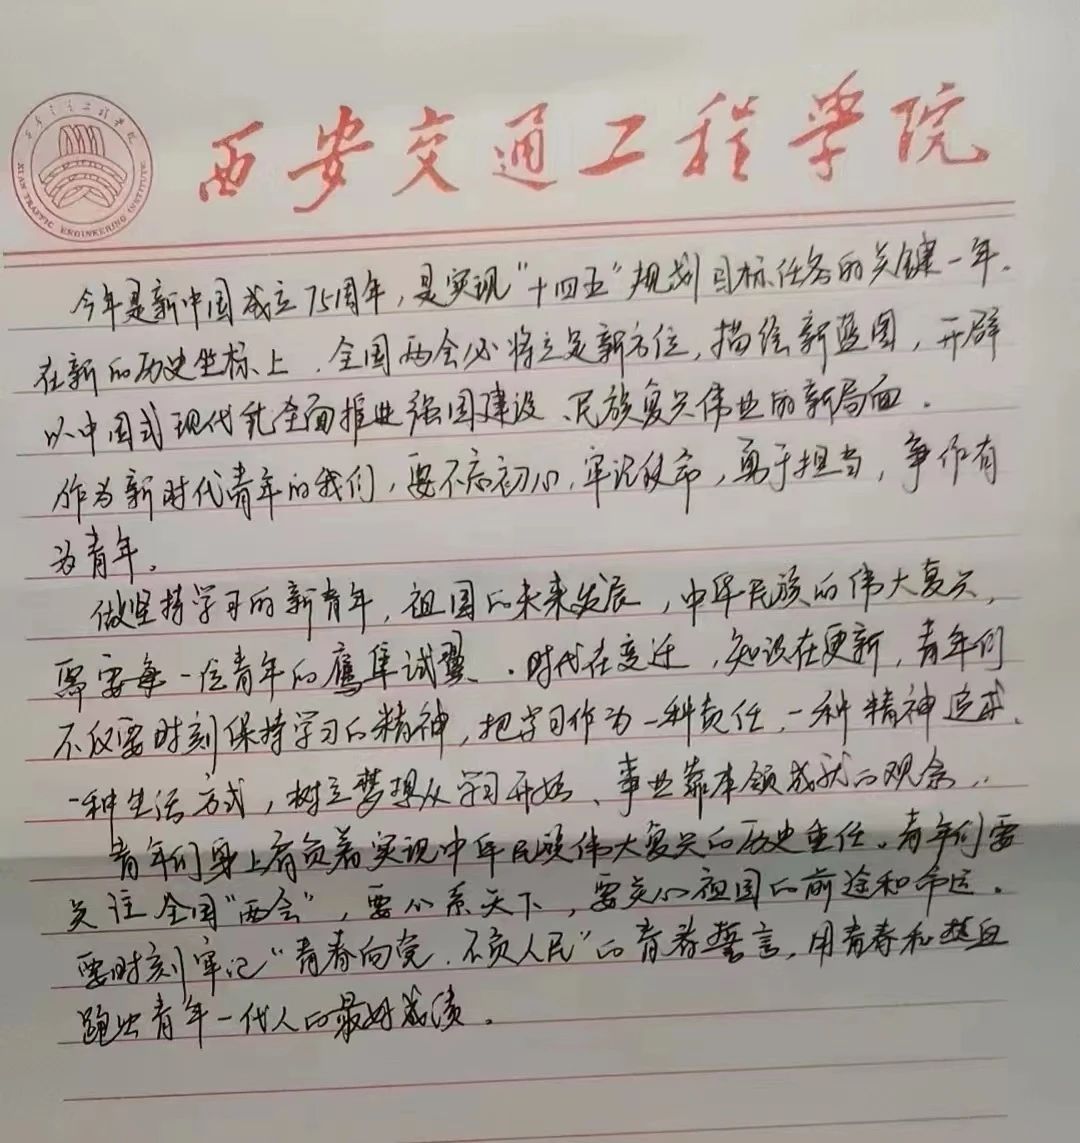 西安交通工程学院
西安交通工程学院
XI'AN TRAFFIC ENGINEERING INSTITUTE
今年是新中国成立75周年，是实现“十四五”规划目标任务的关键一年.
在新的历史坐标上，全国两会必将立定新方位，描绘新蓝图，开辟
以中国式现代化全面推进强国建设、民族复兴伟业的新局面.
作为新时代青年的我们，要不忘初心，牢记使命，勇于担当，争作有
为青年。
做坚持学习的新青年，祖国的未来发展，中华民族的伟大复兴，
需要每一位青年的鹰隼试翼.时代在变迁，知识在更新，青年们
不仅要时刻保持学习的精神，把学习作为一种责任、一种精神追求、
一种生活方式，树立梦想从学习开始、事业靠本领成就的观念，
青年们身上肩负着实现中华民族伟大复兴的历史重任。青年们要
关注全国“两会”，要心系天下，要关心祖国的前途和命运.
要时刻牢记“青春向党、不负人民”的青春誓言，用青春和热血
跑出青年一代人的最好成绩.